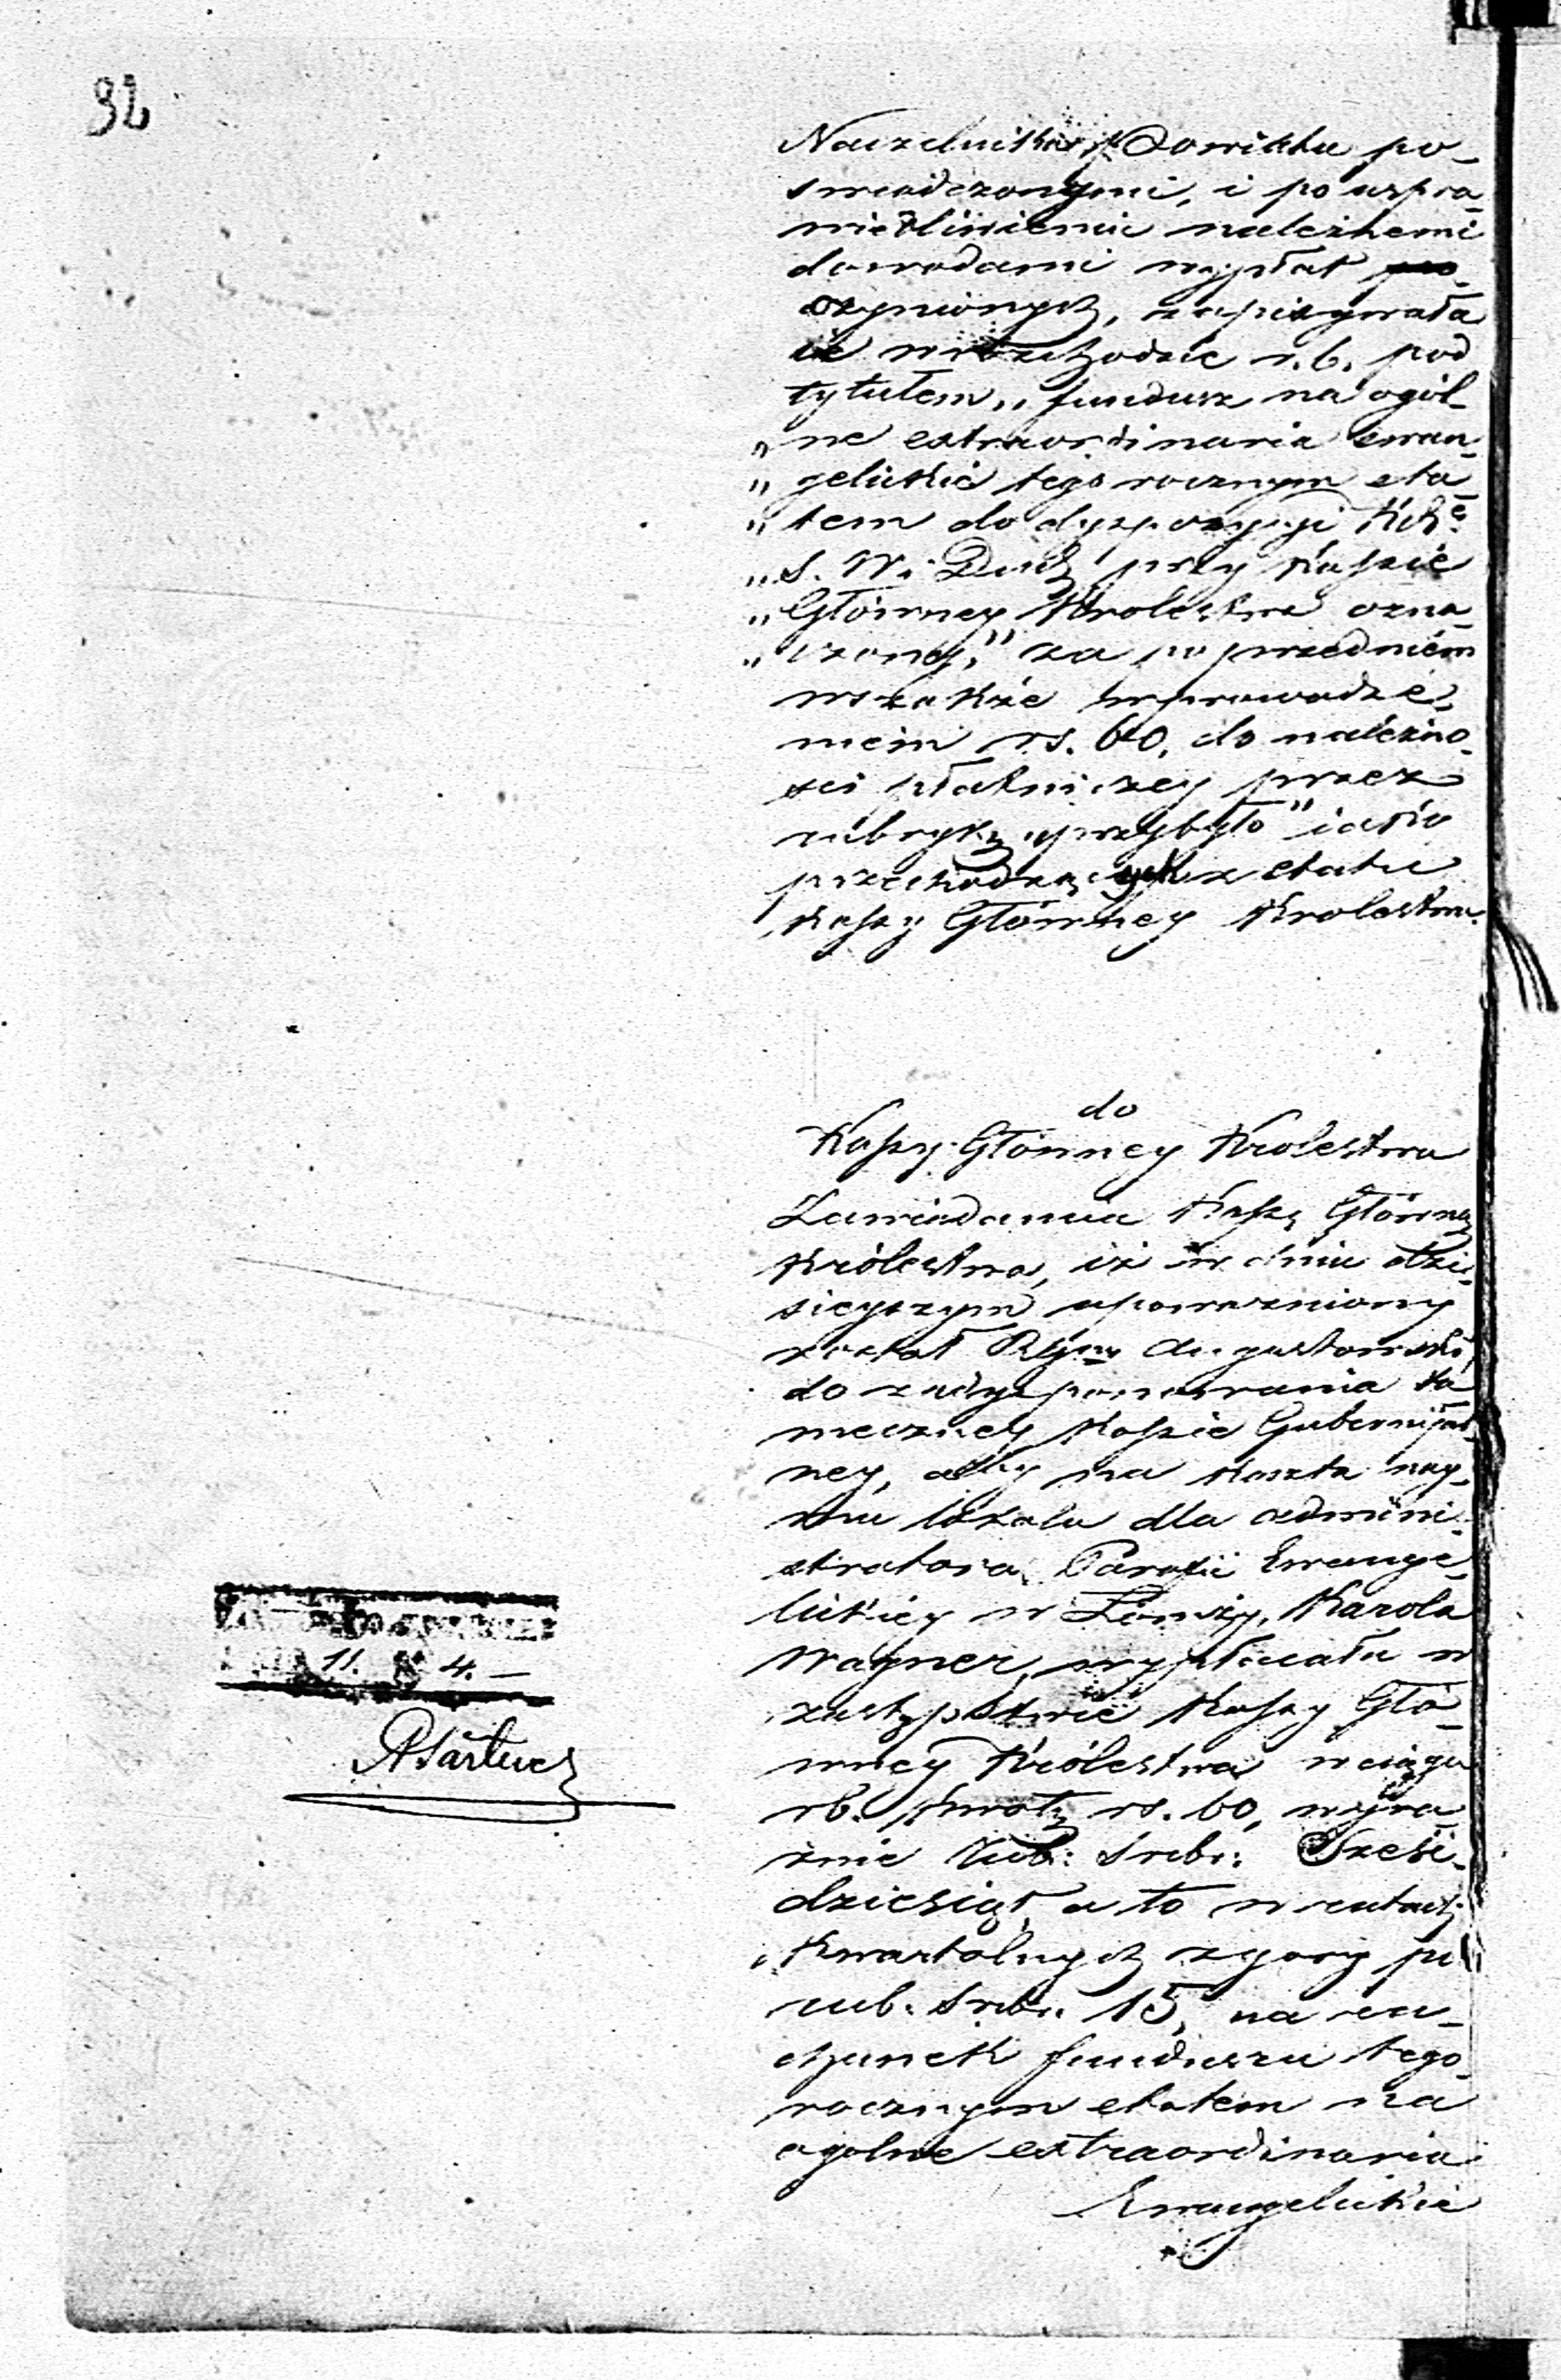 32
Naczelników Powiatu po-
swiadczonymi, i po uspra-
wiedliwieniu należnemi
dowodami wypłat
czynionych, zapisywała
ie w rozchodzie r. b. pod
tytułem „fundusz na ogól-
„ne extraordinaria ewan-
„gelickie tego rocznym eta-
„tem do dyspozycyi
„S. W. i Duch przy Kassie
„Głównej Królestwa ozna-
„czony," za poprzedniém
wszakże wprowadze-
niem rs. 60, do należno-
sci płatniczey przez
rubrykę „przybyło" iako
przechodzących z etatu
Kassy Główney Krolestwa.
do
Kassy Główney Krolestwa
Zawiadamia Kassę Główną
Królestwa, iż w dniu dzi-
sieyszym upoważniony
został Augustowski,
do zadysponowania ta-
meczney Kassie Gubernijal-
ney, aby na koszta nay-
mu lokalu dla admini-
stratora Parafii Ewange-
lickiey w Łomży, Karola
Wagner, wypłacała w
zastępstwie Kassy Głó-
wney Królestwa w ciągu
rb. kwotę rs. 60, wyra-
znie Rub: Srebr: Sześć-
dziesiąt, a to w ratach
kwartalnych zgóry po
rub. srebr. 15, na ra-
chunek funduszu tego-
rocznym etatem na
ogolne extraordinaria
Ewangelickie
11. 4. —